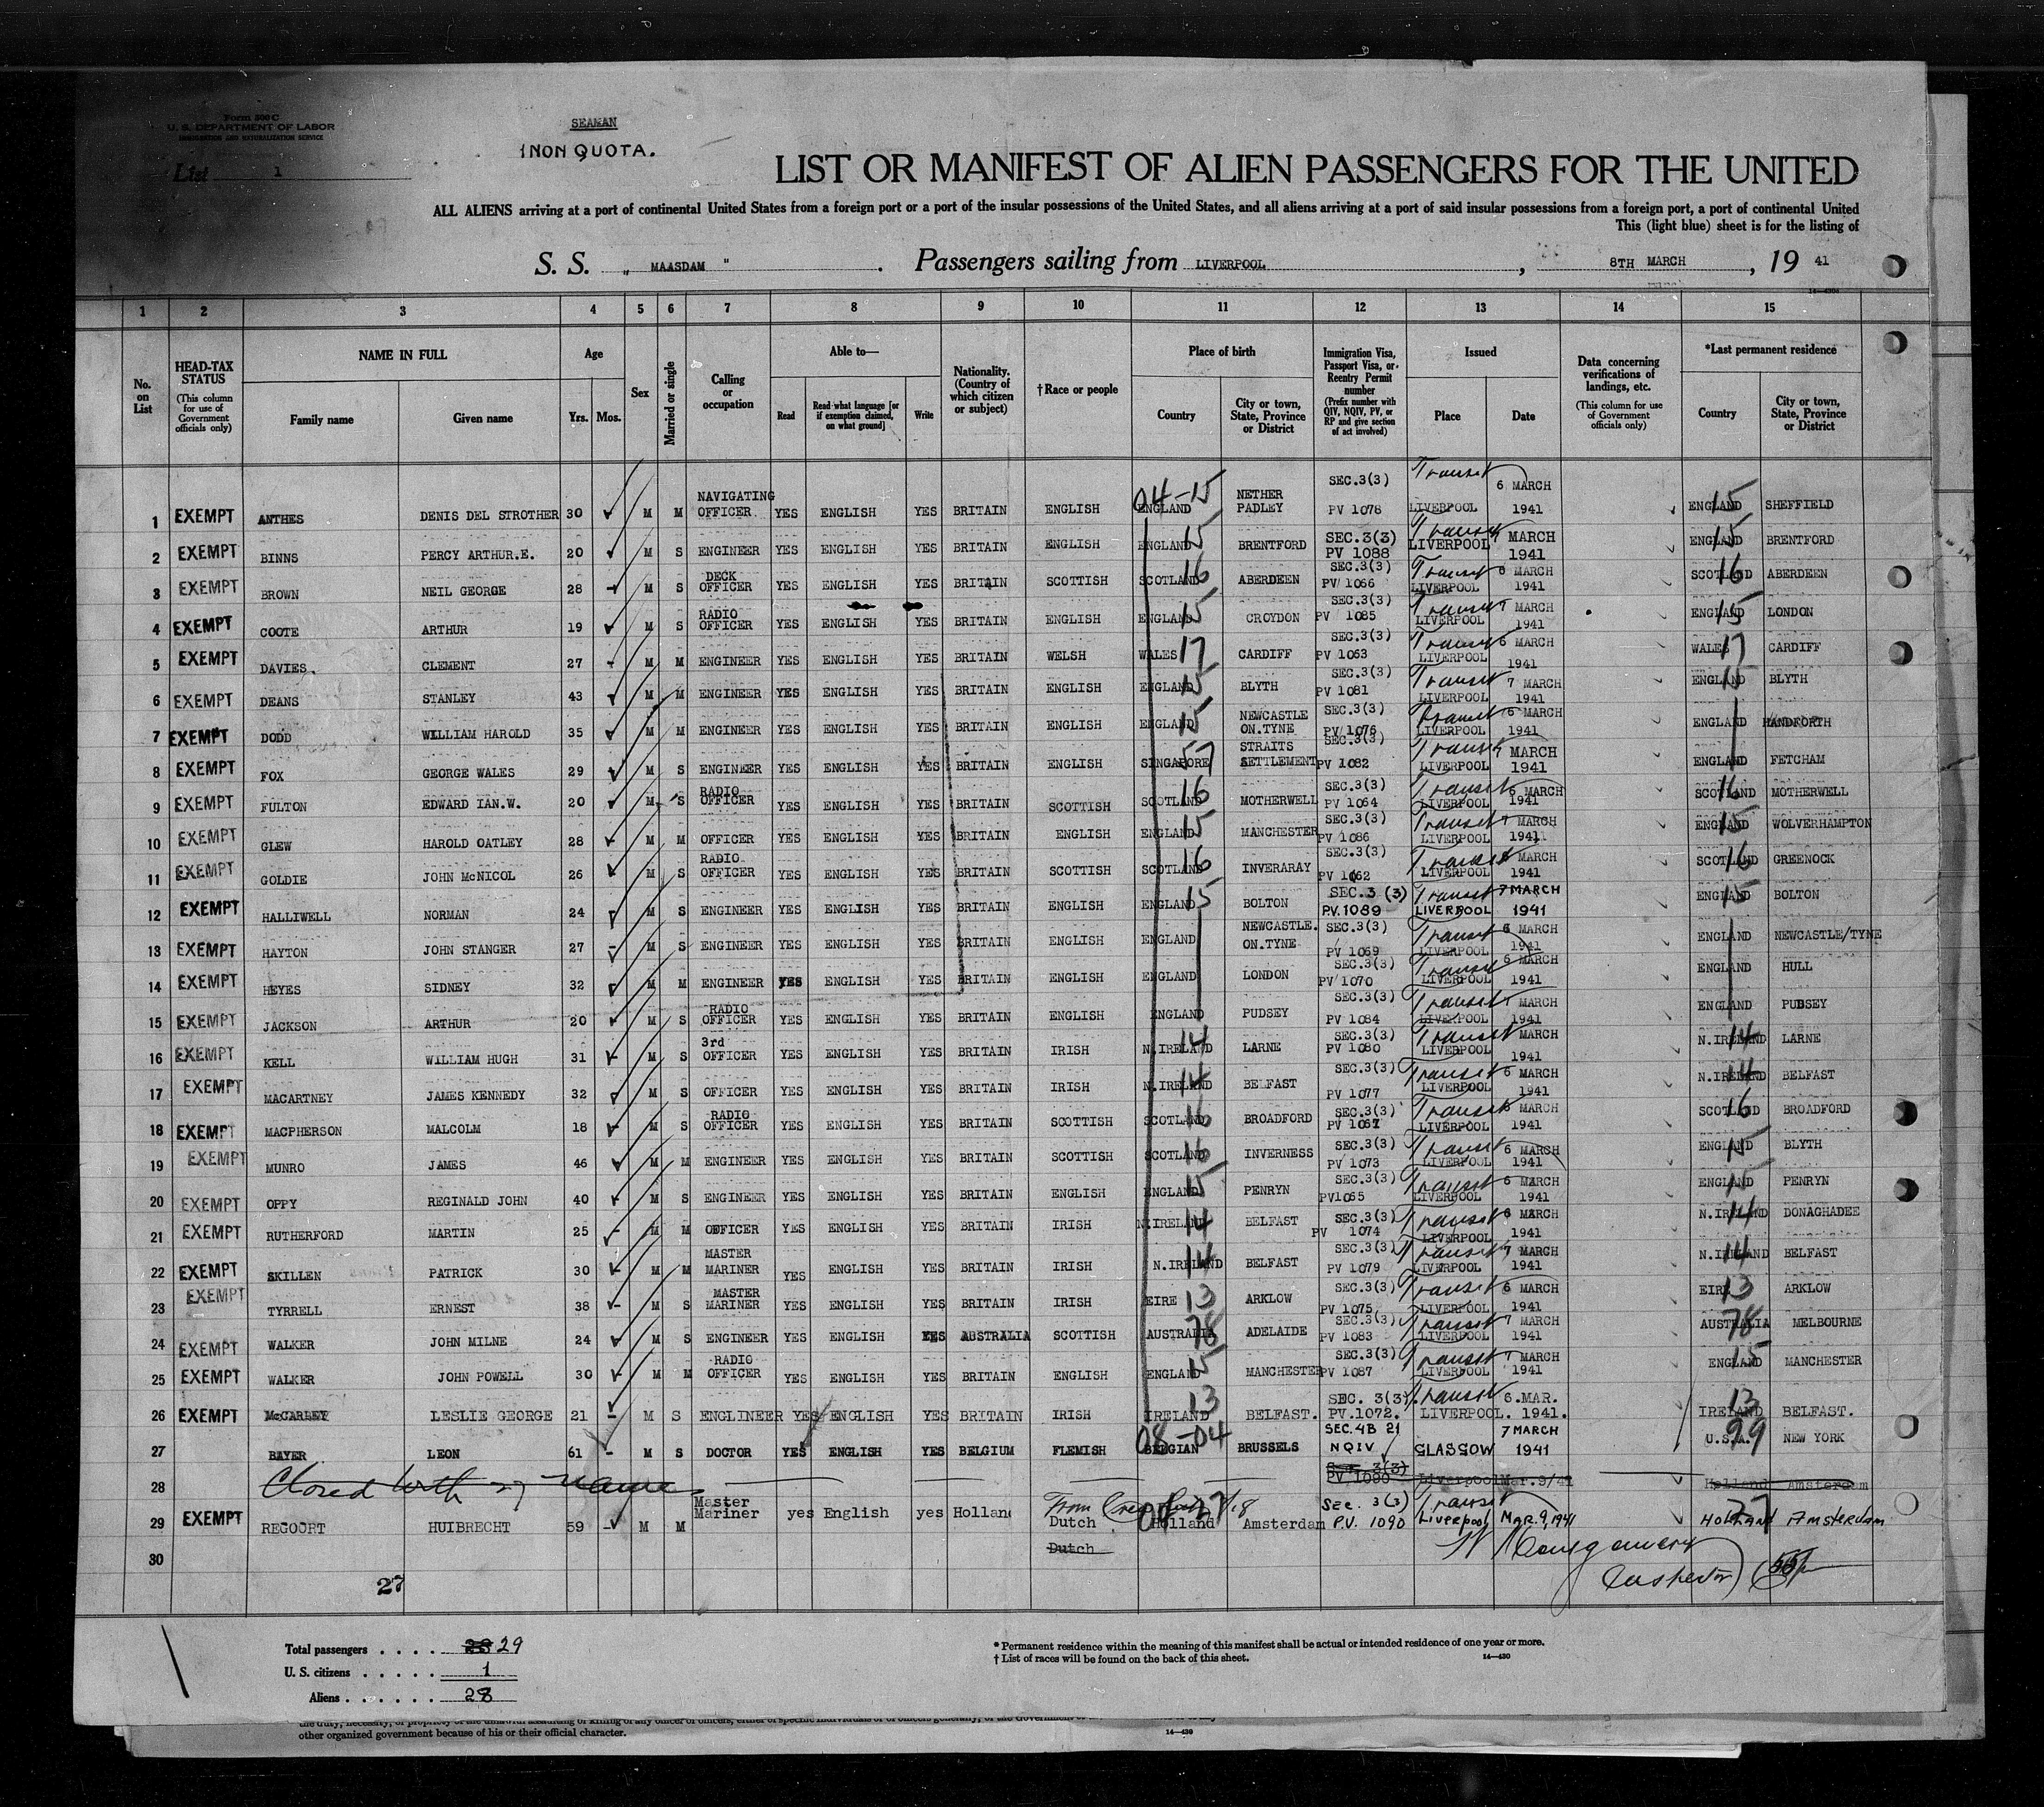 Form 500 C
U. S. DEPARTMENT OF LABOR
IMMIGRATION AND NATURALIZATION SERVICE
List 1
SEAMAN
NON QUOTA.
LIST OR MANIFEST OF ALIEN PASSENGERS FOR THE UNITED
ALL ALIENS arriving at a port of continental United States from a foreign port or a port of the insular possessions of the United States, and all aliens arriving at a port of said insular possessions from a foreign port, a port of continental United
This (light blue) sheet is for the listing of
S. S. " MAASDAM " . Passengers sailing from LIVERPOOL , 8TH MARCH , 19 41
1 2 3 4 5 6 7 8 9 10 11 12 13 14 15
No. on List
HEAD-TAX STATUS (This column for use of Government officials only)
NAME IN FULL
Family name Given name
Age Yrs. Mos.
Sex
Married or single
Calling or occupation
Able to—
Read Read what language [or if exemption claimed, on what ground] Write
Nationality. (Country of which citizen or subject)
†Race or people
Place of birth
Country City or town, State, Province or District
Immigration Visa, Passport Visa, or Reentry Permit number (Prefix number with QIV, NQIV, PV, or RP and give section of act involved)
Issued
Place Date
Data concerning verifications of landings, etc. (This column for use of Government officials only)
*Last permanent residence
Country City or town, State, Province or District
1 EXEMPT ANTHES DENIS DEL STROTHER 30 M M NAVIGATING OFFICER YES ENGLISH YES BRITAIN ENGLISH 04-15 ENGLAND NETHER PADLEY SEC.3(3) PV 1078 Transit LIVERPOOL 6 MARCH 1941 ENGLAND 15 SHEFFIELD
2 EXEMPT BINNS PERCY ARTHUR.E. 20 M S ENGINEER YES ENGLISH YES BRITAIN ENGLISH ENGLAND 15 BRENTFORD SEC.3(3) PV 1088 Transit LIVERPOOL 7 MARCH 1941 ENGLAND 15 BRENTFORD
3 EXEMPT BROWN NEIL GEORGE 28 M S DECK OFFICER YES ENGLISH YES BRITAIN SCOTTISH SCOTLAND 16 ABERDEEN SEC.3(3) PV 1066 Transit LIVERPOOL 6 MARCH 1941 SCOTLAND 16 ABERDEEN
4 EXEMPT COOTE ARTHUR 19 M S RADIO OFFICER YES ENGLISH YES BRITAIN ENGLISH ENGLAND 15 CROYDON SEC.3(3) PV 1085 Transit LIVERPOOL 7 MARCH 1941 ENGLAND 15 LONDON
5 EXEMPT DAVIES. CLEMENT 27 M M ENGINEER YES ENGLISH YES BRITAIN WELSH WALES 17 CARDIFF SEC.3(3) PV 1063 Transit LIVERPOOL 6 MARCH 1941 WALES 17 CARDIFF
6 EXEMPT DEANS STANLEY 43 M M ENGINEER YES ENGLISH YES BRITAIN ENGLISH ENGLAND 15 BLYTH SEC.3(3) PV 1081 Transit LIVERPOOL 7 MARCH 1941 ENGLAND 15 BLYTH
7 EXEMPT DODD WILLIAM HAROLD 35 M M ENGINEER YES ENGLISH YES BRITAIN ENGLISH ENGLAND 15 NEWCASTLE ON.TYNE SEC.3(3) PV 1076 Transit LIVERPOOL 6 MARCH 1941 ENGLAND HANDFORTH
8 EXEMPT FOX GEORGE WALES 29 M S ENGINEER YES ENGLISH YES BRITAIN ENGLISH SINGAPORE 57 STRAITS SETTLEMENT SEC.3(3) PV 1082 Transit LIVERPOOL 7 MARCH 1941 ENGLAND FETCHAM
9 EXEMPT FULTON EDWARD IAN.W. 20 M S RADIO OFFICER YES ENGLISH YES BRITAIN SCOTTISH SCOTLAND 16 MOTHERWELL SEC.3(3) PV 1064 Transit LIVERPOOL 6 MARCH 1941 SCOTLAND 16 MOTHERWELL
10 EXEMPT GLEW HAROLD OATLEY 28 M M OFFICER YES ENGLISH YES BRITAIN ENGLISH ENGLAND 15 MANCHESTER SEC.3(3) PV 1086 Transit LIVERPOOL 7 MARCH 1941 ENGLAND 15 WOLVERHAMPTON
11 EXEMPT GOLDIE JOHN McNICOL 26 M S RADIO OFFICER YES ENGLISH YES BRITAIN SCOTTISH SCOTLAND 16 INVERARAY SEC.3(3) PV 1062 Transit LIVERPOOL 6 MARCH 1941 SCOTLAND 16 GREENOCK
12 EXEMPT HALLIWELL NORMAN 24 M S ENGINEER YES ENGLISH YES BRITAIN ENGLISH ENGLAND 15 BOLTON SEC.3 (3) P.V.1089 Transit LIVERPOOL 7 MARCH 1941 ENGLAND 15 BOLTON
13 EXEMPT HAYTON JOHN STANGER 27 M S ENGINEER YES ENGLISH YES BRITAIN ENGLISH ENGLAND NEWCASTLE. ON.TYNE SEC.3(3) PV 1069 Transit LIVERPOOL 6 MARCH 1941 ENGLAND NEWCASTLE/TYNE
14 EXEMPT HEYES SIDNEY 32 M M ENGINEER YES ENGLISH YES BRITAIN ENGLISH ENGLAND LONDON SEC.3(3) PV 1070 Transit LIVERPOOL 6 MARCH 1941 ENGLAND HULL
15 EXEMPT JACKSON ARTHUR 20 M S RADIO OFFICER YES ENGLISH YES BRITAIN ENGLISH ENGLAND PUDSEY SEC.3(3) PV 1084 Transit LIVERPOOL 7 MARCH 1941 ENGLAND PUDSEY
16 EXEMPT KELL WILLIAM HUGH 31 M S 3rd OFFICER YES ENGLISH YES BRITAIN IRISH N.IRELAND 14 LARNE SEC.3(3) PV 1080 Transit LIVERPOOL MARCH 1941 N.IRELAND 14 LARNE
17 EXEMPT MACARTNEY JAMES KENNEDY 32 M S OFFICER YES ENGLISH YES BRITAIN IRISH N.IRELAND 14 BELFAST SEC.3(3) PV 1077 Transit LIVERPOOL 6 MARCH 1941 N.IRELAND 14 BELFAST
18 EXEMPT MACPHERSON MALCOLM 18 M S RADIO OFFICER YES ENGLISH YES BRITAIN SCOTTISH SCOTLAND 16 BROADFORD SEC.3(3) PV 1067 Transit LIVERPOOL 6 MARCH 1941 SCOTLAND 16 BROADFORD
19 EXEMPT MUNRO JAMES 46 M M ENGINEER YES ENGLISH YES BRITAIN SCOTTISH SCOTLAND 16 INVERNESS SEC.3(3) PV 1073 Transit LIVERPOOL 6 MARCH 1941 ENGLAND 15 BLYTH
20 EXEMPT OPPY REGINALD JOHN 40 M S ENGINEER YES ENGLISH YES BRITAIN ENGLISH ENGLAND 15 PENRYN SEC.3(3) PV1065 Transit LIVERPOOL 6 MARCH 1941 ENGLAND 15 PENRYN
21 EXEMPT RUTHERFORD MARTIN 25 M M OFFICER YES ENGLISH YES BRITAIN IRISH N.IRELAND 14 BELFAST SEC.3(3) PV 1074 Transit LIVERPOOL 6 MARCH 1941 N.IRELAND 14 DONAGHADEE
22 EXEMPT SKILLEN PATRICK 30 M M MASTER MARINER YES ENGLISH YES BRITAIN IRISH N.IRELAND 14 BELFAST SEC.3(3) PV 1079 Transit LIVERPOOL 7 MARCH 1941 N.IRELAND 14 BELFAST
23 EXEMPT TYRRELL ERNEST 38 M S MASTER MARINER YES ENGLISH YES BRITAIN IRISH EIRE 13 ARKLOW SEC.3(3) PV 1075 Transit LIVERPOOL 6 MARCH 1941 EIRE 13 ARKLOW
24 EXEMPT WALKER JOHN MILNE 24 M S ENGINEER YES ENGLISH YES AUSTRALIA SCOTTISH AUSTRALIA 78 ADELAIDE SEC.3(3) PV 1083 Transit LIVERPOOL 7 MARCH 1941 AUSTRALIA 78 MELBOURNE
25 EXEMPT WALKER JOHN POWELL 30 M M RADIO OFFICER YES ENGLISH YES BRITAIN ENGLISH ENGLAND 15 MANCHESTER SEC.3(3) PV 1087 Transit LIVERPOOL 7 MARCH 1941 ENGLAND 15 MANCHESTER
26 EXEMPT McCARLEY LESLIE GEORGE 21 M S ENGLINEER YES ENGLISH YES BRITAIN IRISH IRELAND 13 BELFAST. SEC. 3(3) PV.1072. Transit LIVERPOOL. 6.MAR. 1941. IRELAND 13 BELFAST.
27 BAYER LEON 61 M S DOCTOR YES ENGLISH YES BELGIUM FLEMISH 08-04 BELGIAN BRUSSELS SEC.4B 21 NQIV GLASGOW 7 MARCH 1941 U.S.A. 99 NEW YORK
28 Closed with 27 names Sec 3(3) PV 1090 Liverpool Mar.9/41 Holland Amsterdam
29 EXEMPT REGOORT HUIBRECHT 59 M M Master Mariner yes English yes Holland Dutch Holland Amsterdam SEC. 3(3) P.V. 1090 Transit Liverpool MAR.9,1941 HOLLAND 27 Amsterdam
30 Dutch
W Montgomery
Inspector
27
Total passengers . . . . 28 29
U. S. citizens . . . . . 1
Aliens . . . . . . 28
* Permanent residence within the meaning of this manifest shall be actual or intended residence of one year or more.
† List of races will be found on the back of this sheet.
14—430
other organized government because of his or their official character.
14—430